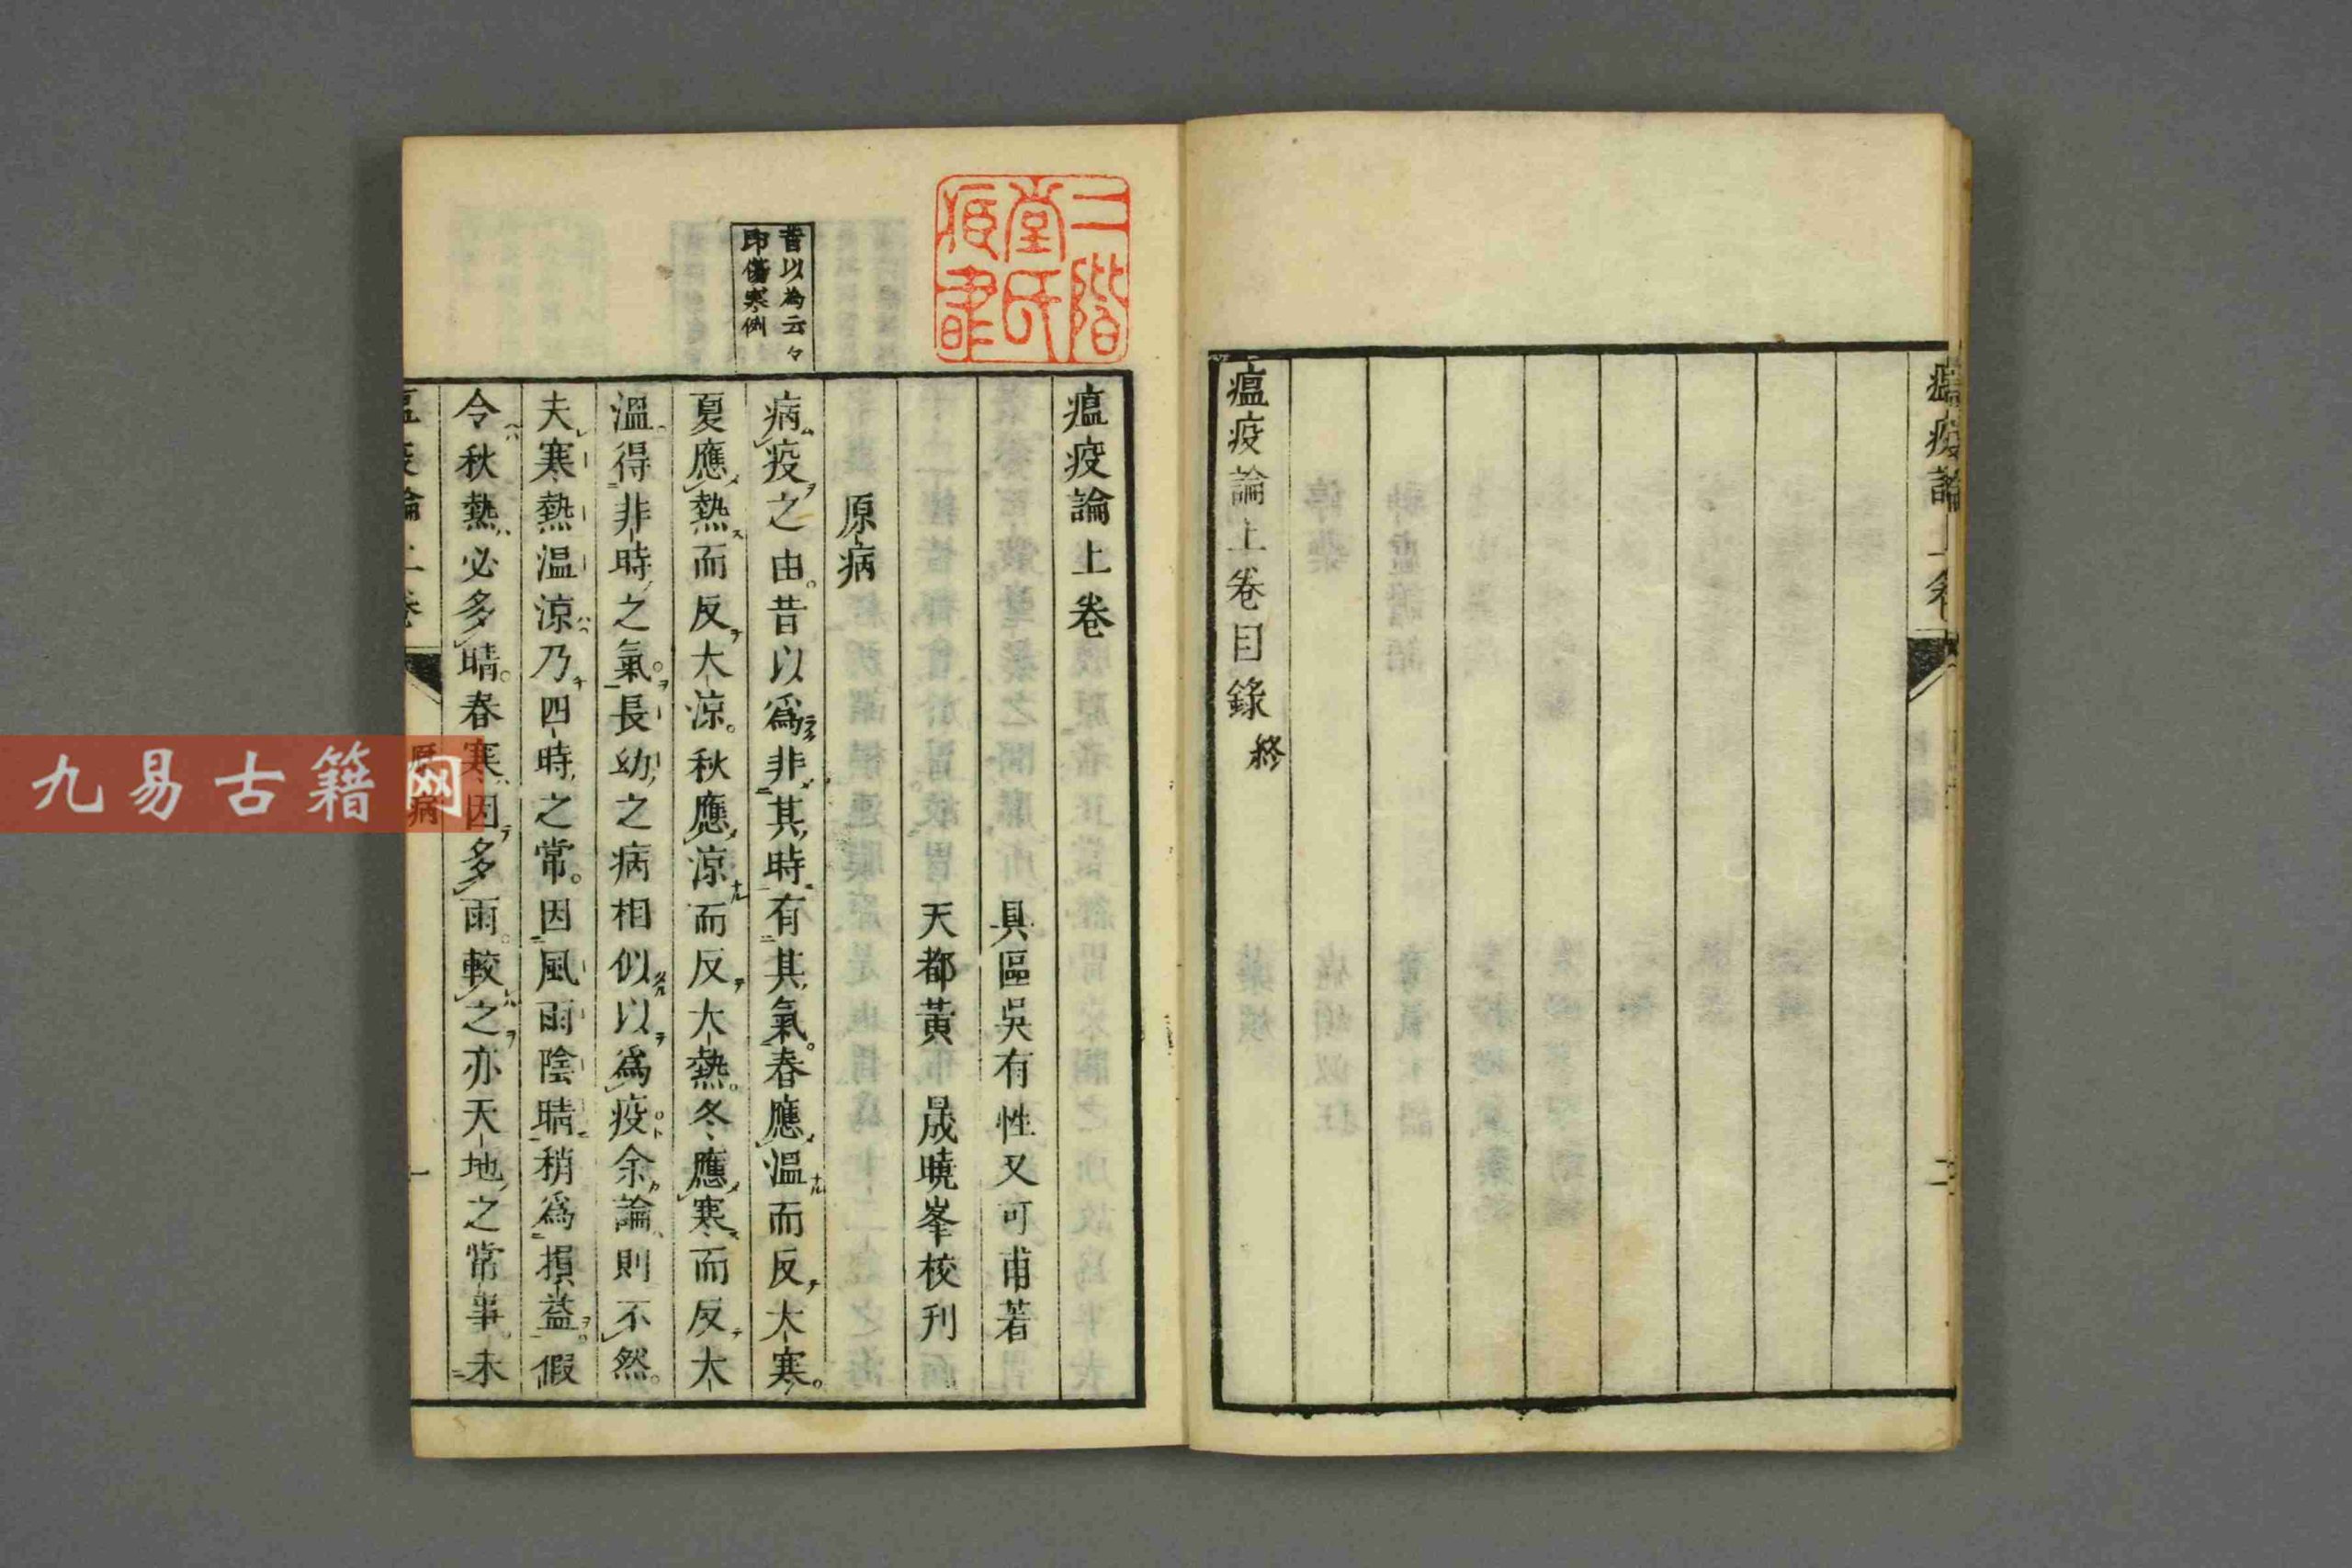 瘟疫論上卷
二
瘟疫論上卷目錄終
二階
堂氏
昔以為云々
即傷寒例
瘟疫論上卷
具區吳有性又可甫著
天都黃晟曉峯校刊
原病
病疫之由。昔以爲非其時有其氣。春應溫而反大寒。
夏應熱而反大涼。秋應涼而反大熱。冬應寒而反大
溫得非時之氣。長幼之病相似以爲疫。余論則不然。
夫寒熱温涼乃四時之常。因風雨陰晴稍爲損益。假
令秋熱必多晴。春寒因多雨。較之亦天地之常事。未
瘟疫論上卷
原病
一
九易古籍网